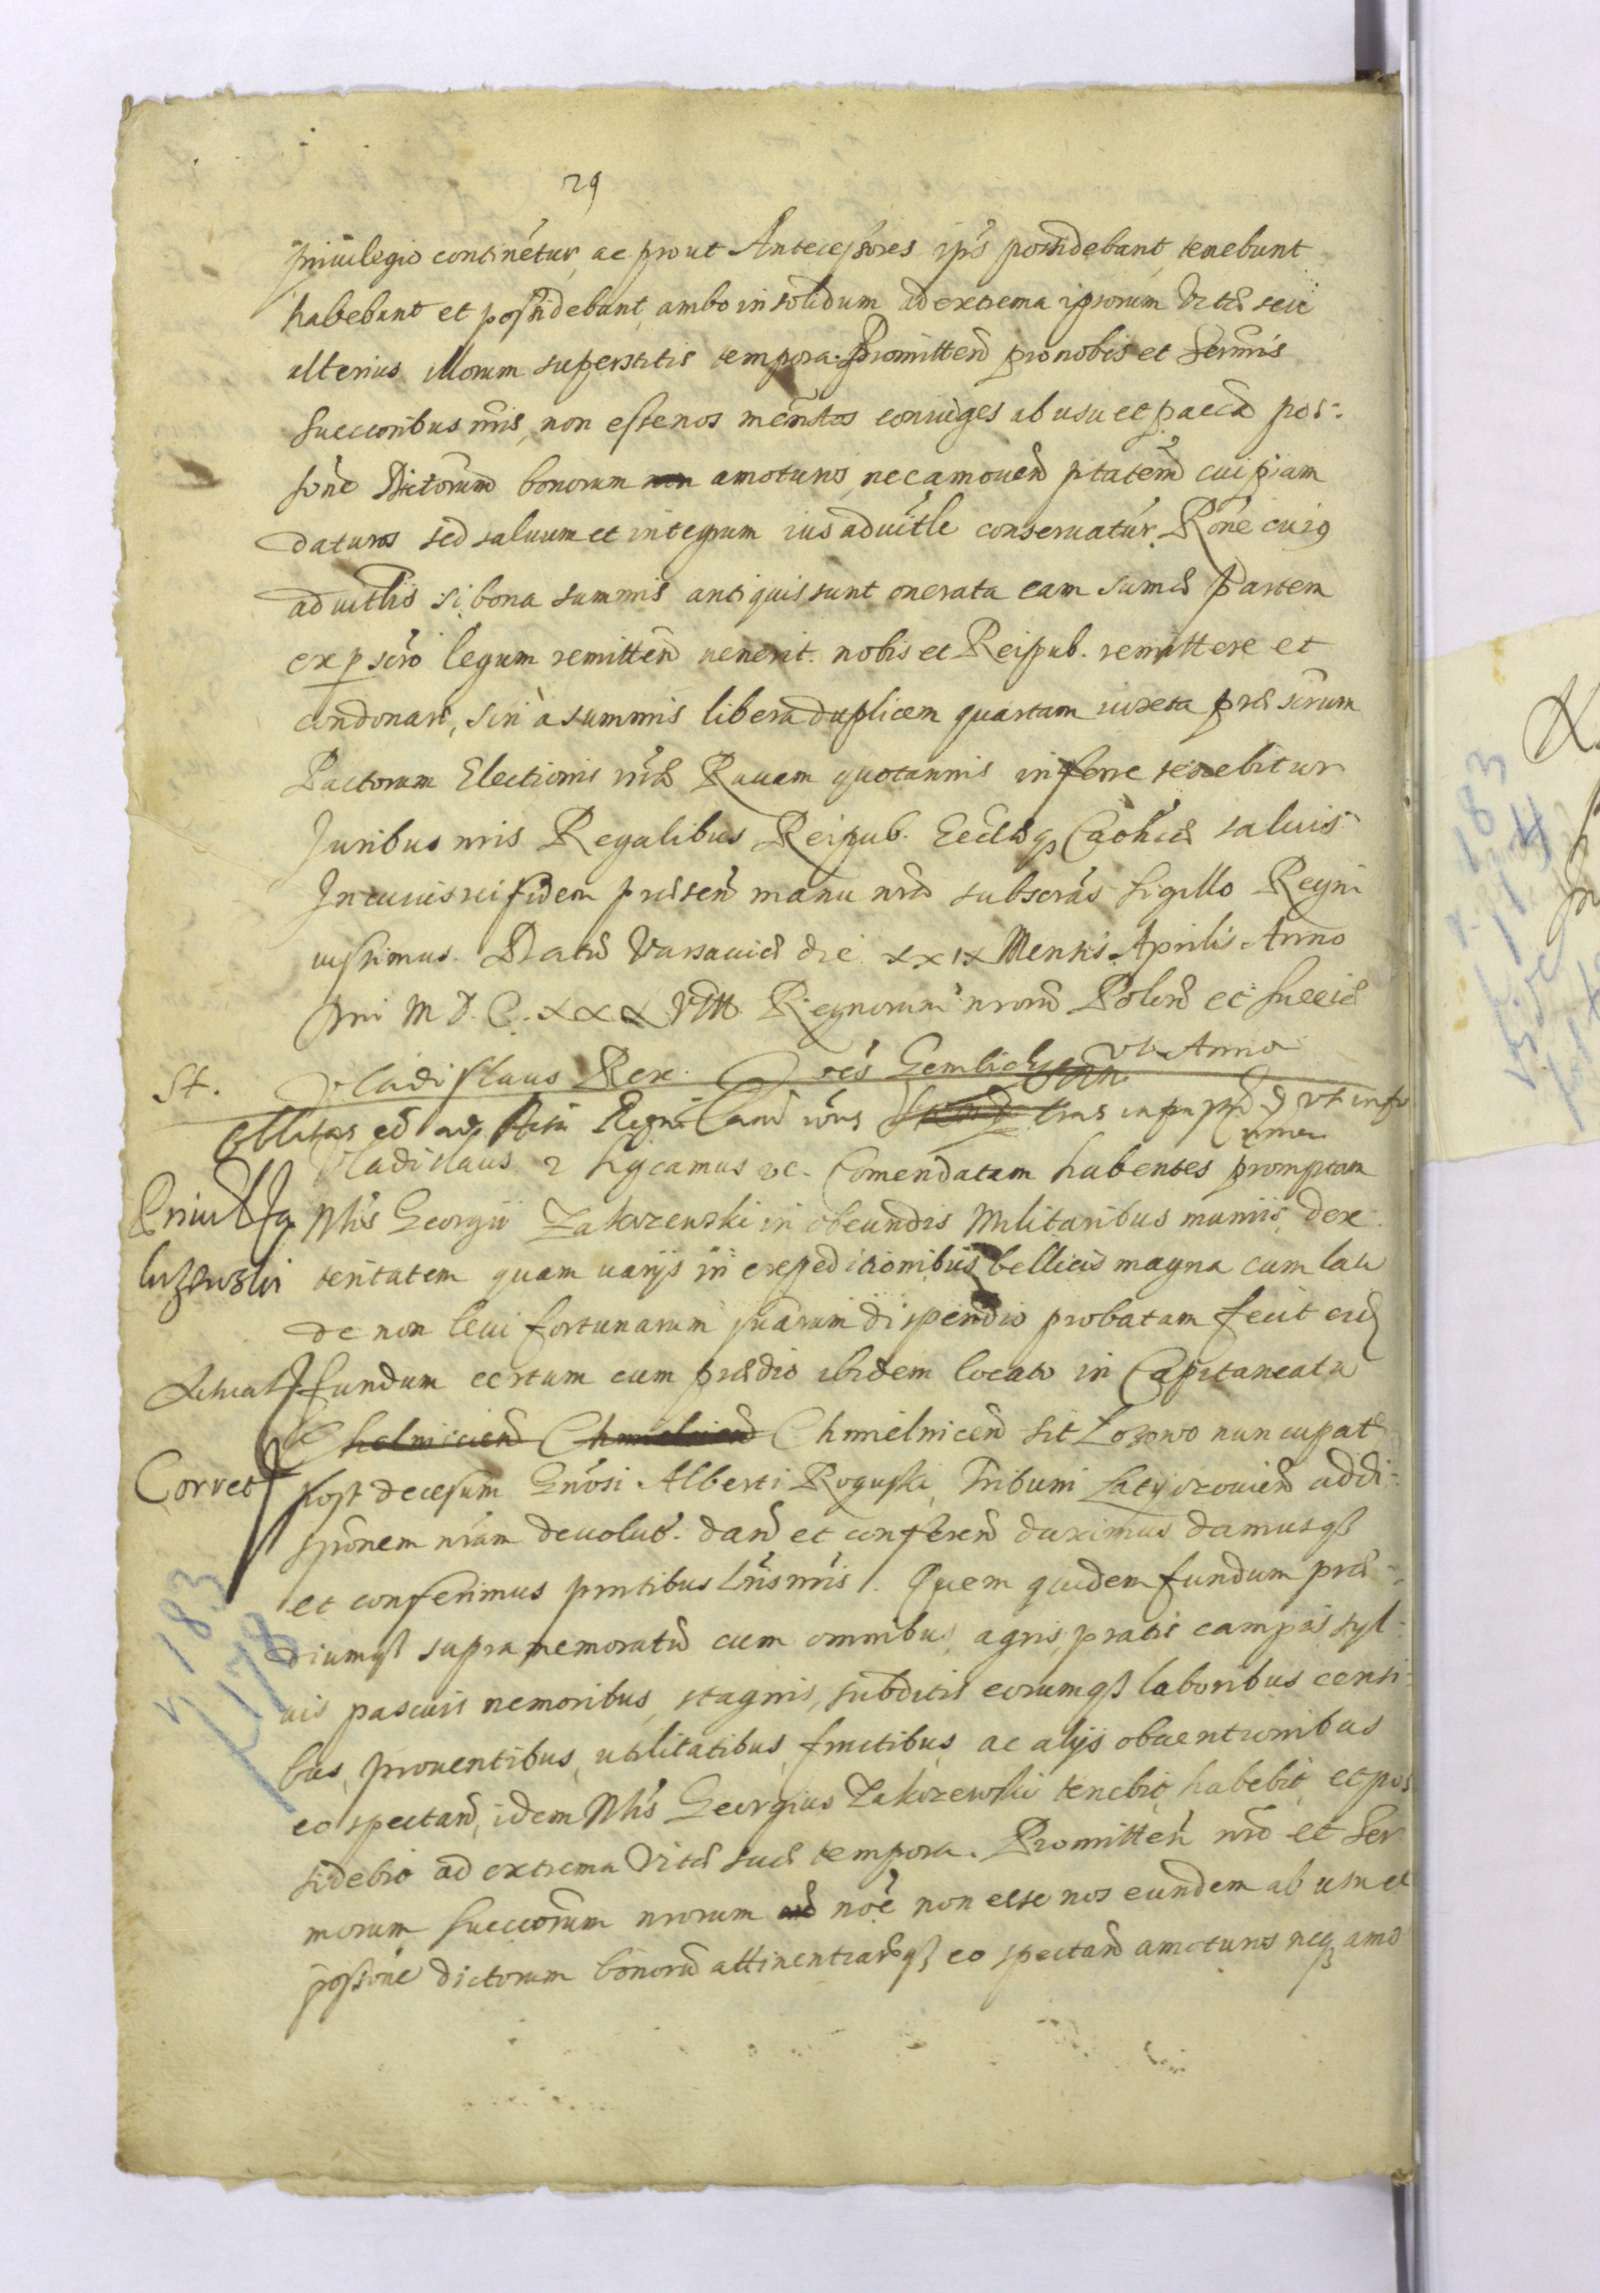 29
priuilegio continetur, ac prout Antecessores ips possidebant, tenebunt
habebunt et possidebunt, ambo in solidum ad extrema ipsorum vitæ seu
alterius illorum superstitis tempora. Promitten pro nobis et Sermis
Succoribus nris, non esse nos mentos coniuges ab usu et pacca pos-
sone dictorum bonorum amoturos, nec amouen ptatem cuipiam
daturos sed saluum et integrum ius aduitle conseruatur. Rone cuius
aduitlis si bona summis antiquis sunt onerata eam sumæ partem
ex pscro legum remitten uenerit nobis et Reipub. remittere et
condonare, sin à summis libera duplicem quartam iuxta præscrum
Pactorum Electionis nræ Rauam quotannis inferre tenebitur
Juribus nris Regalibus Reipub. Ecclæq Caohcæ saluis
In cuius rei fidem præsen manu nra subscras sigillo Regni
iussimus. Datu Varsauiæ die xxix Mensis Aprilis Anno
Dni M D. C. xxx VIII Regnorum nroru Polon et Sueciæ
St. Vladislaus Rex. Gembicki vt Anno
Vladislaus 2 Sgcamus &c. Comendatam habentes promptam
Mfis Georgii Zakrzewski in obeundis Militaribus muniis, dex-
teritatem quam varijs in expeditionibus bellicis magna cum lau
de non leui fortunarum suarum dispendio probatam fecit ei
fundum certum cum prædio ibidem locato in Capitaneatu
Chmielnicen sit Lozowo nuncupat
Correct post decessum Gnosi Alberti Roguski, Tribuni Latyczouien ad di-
sponem nram deuolut. dan et conferen duximus damusq
et conferimus pntibus Lris nris. Quem quidem fundum præ-
diumq supra memoratu cum omnibus, agris, pratis campis syl-
uis pascuis nemoribus, stagnis, subditis eorumq laboribus censi-
bus, prouentibus, utilitatibus, fructibus, ac alijs obuentionibus
eo spectan, idem Mfis Georgius Zakrzewski tenebit, habebit, et pos
sidebit ad extrema vitæ suæ tempora. Promitten nro et Ser
morum Succorum nrorum noe non esse nos eundem ab usu et
possione dictorum bonoru attinentiaruq eo spectan amoturos neq amo
5 183
178
183